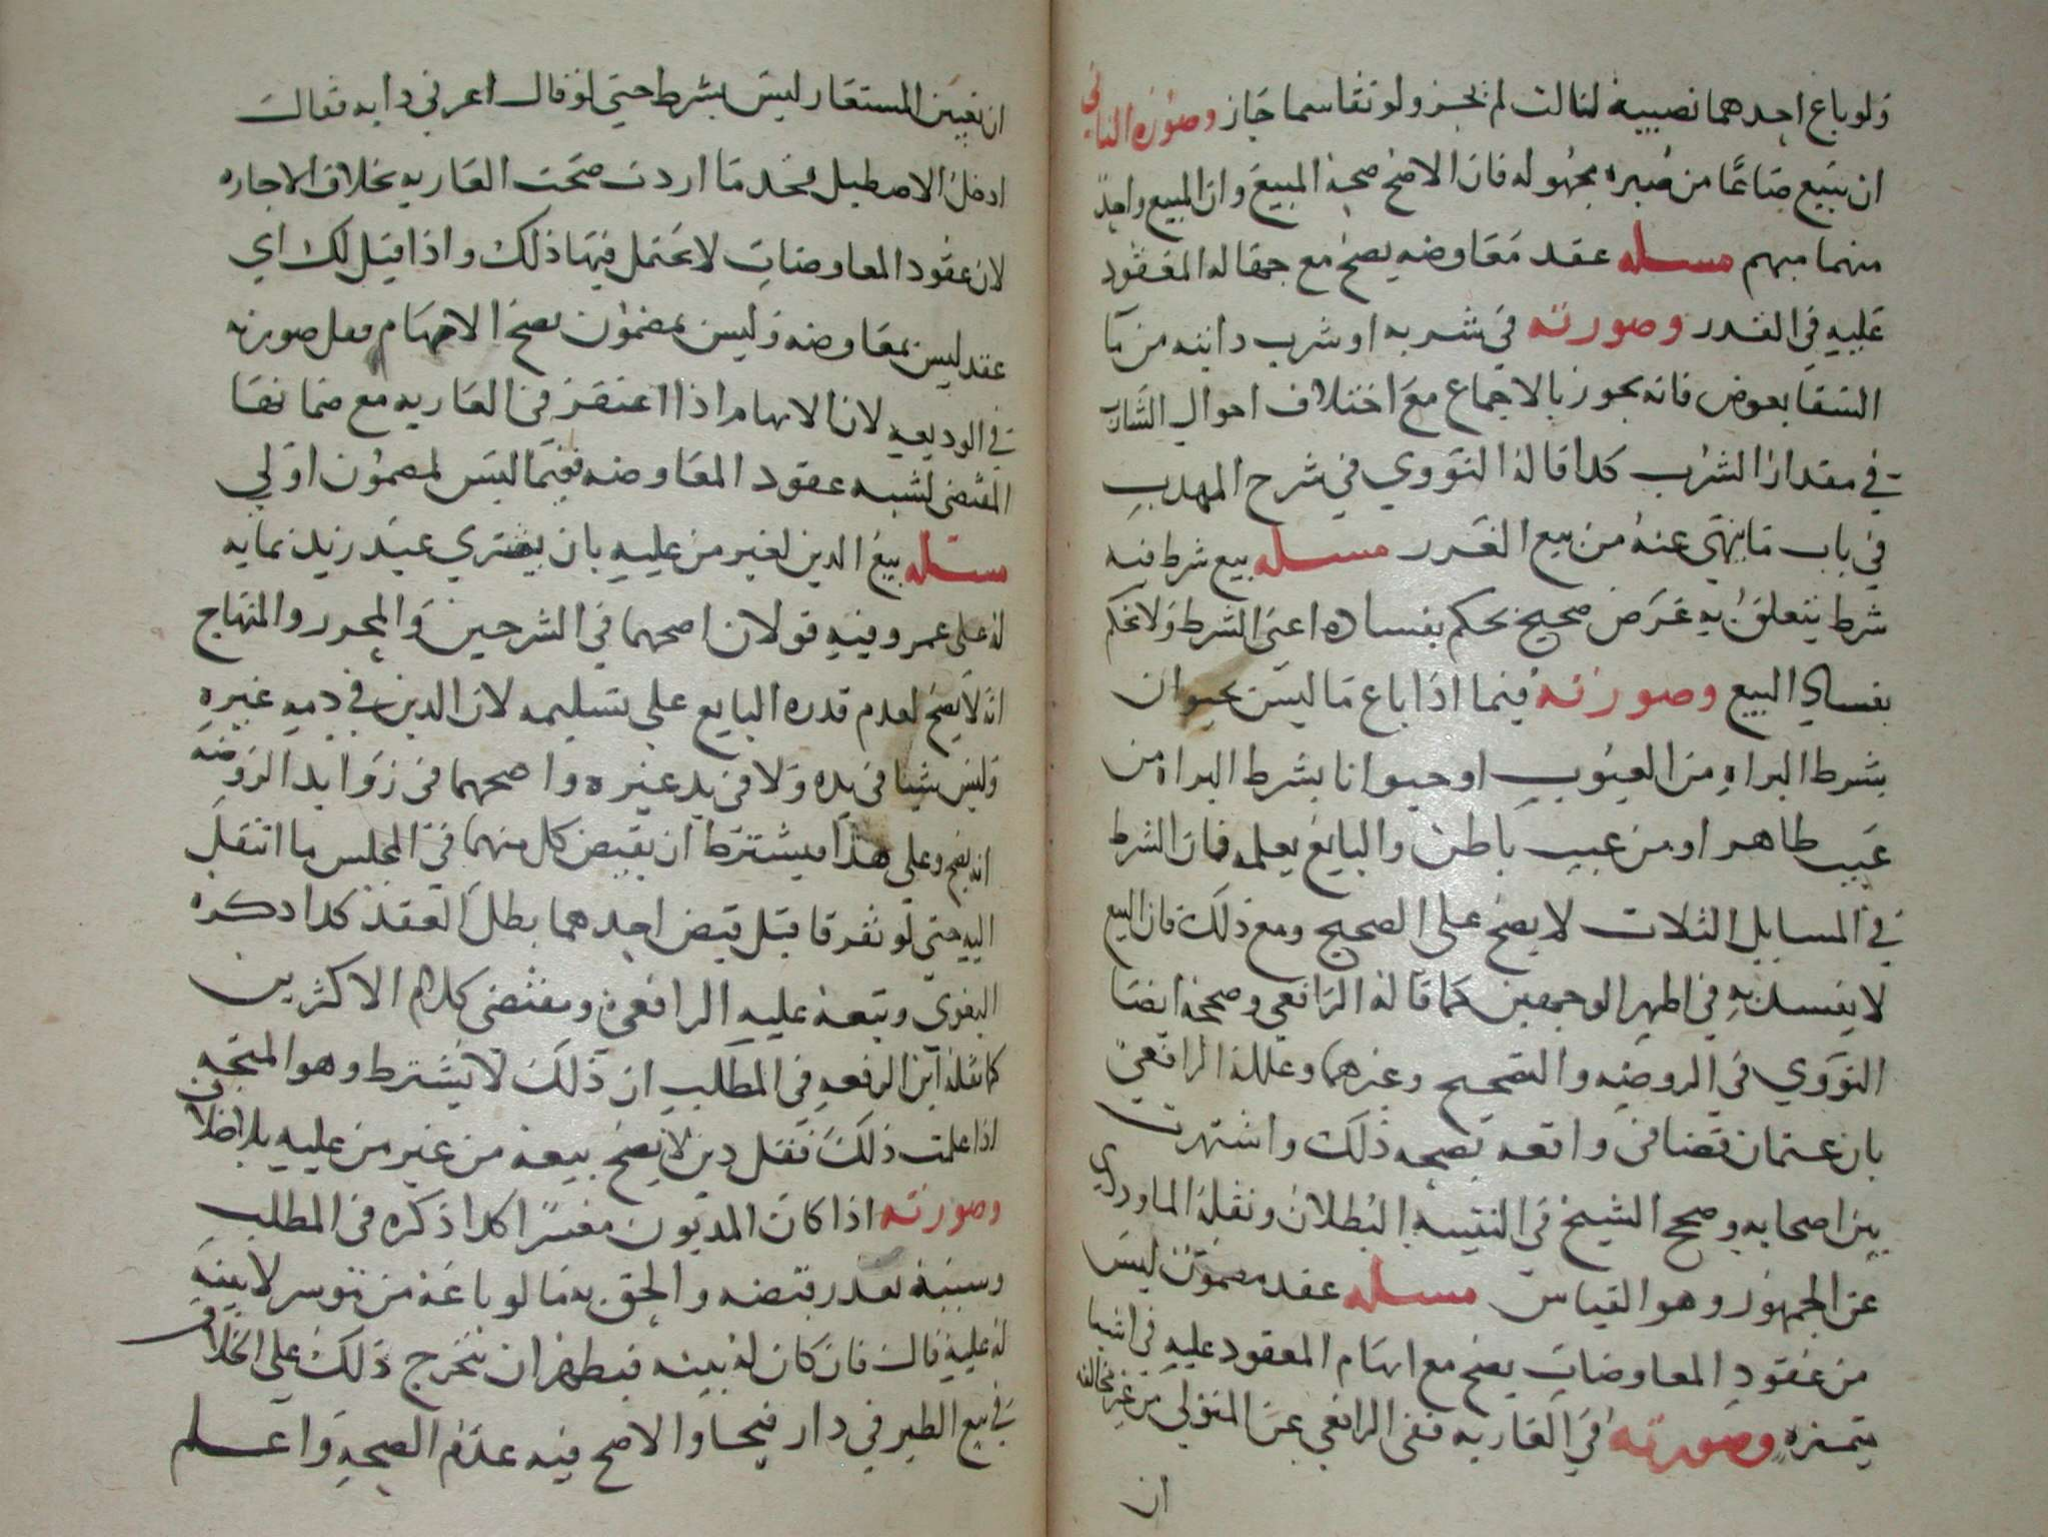 ولو باع احدهما نصيبه لثالث لم يجز ولو تقاسما جاز وصوره الثاني
ان يبيع صاعا من صبره مجهوله فان الاصح صحه المبيع وان المبيع واحد
منهما مبهم مسله عقد معاوضه يصح مع جهاله المعقود
عليه في القدر وصورته في شربه او شرب دابته من ما
السقا بعوض فانه يجوز بالاجماع مع اختلاف احوال الشارب
في مقدار الشرب كذا قاله النووي في شرح المهذب
في باب ما ينهى عنه من بيع الغرر مسله بيع شرط فيه
شرط يتعلق به غرض صحيح نحكم بفساده اعنى الشرط ولا نحكم
بفساد البيع وصورته فيما اذا باع ما ليس بحيوان
بشرط البراه من العيوب او حيوانا بشرط البراه من
عيب ظاهر او من عيب باطن والبايع يعلمه فان الشرط
في المسايل الثلاث لا يصح على الصحيح ومع ذلك فان البيع
لا يفسد به في اظهر الوجهين كما قاله الرافعي وصححه ايضا
النووي في الروضه والتصحيح وغيرهما وعلله الرافعي
بان عثمان قضا في واقعه بصحه ذلك واشتهرت
بين اصحابه وصحح الشيخ في التنبيه البطلان ونقله الماوردي
عن الجمهور وهو القياس مسله عقد مضمون ليس
من عقود المعاوضات يصح مع ابهام المعقود عليه في اشيا
متميزه وصورته في العاريه ففى الرافعي عن المتولى من غير مخالفه
ان
ان تعيين المستعار ليس بشرط حتى لو قال اعرني دابه فقال
ادخل الاصطبل فخد ما اردت صحت العاريه بخلاف الاجاره
لان عقود المعاوضات لا يحتمل فيها ذلك واذا قيل لك اي
عقد ليس بمعاوضه وليس بمضمون يصح الابهام فقل صورته
في الوديعه لان الابهام اذا اغتفر في العاريه مع ضمانها
المقتضى لشبه عقود المعاوضه ففيما ليس بمضمون اولي
مسله بيع الدين لغير من عليه بان يشتري عبد زيد بمايه
له على عمرو فيه قولان اصحهما في الشرحين والمحرر والمنهاج
انه لا يصح لعدم قدره البايع على تسليمه لان الدين في دمه غيره
وليس شيئا في يده ولا في يد غيره واصحهما في زوايد الروضه
انه يصح وعلى هذا فيشترط ان يقبض كل منهما في المجلس ما انتقل
اليه حتى لو تفرقا قبل قبض احدهما بطل العقد كدا دكره
البغوي وتبعه عليه الرافعي ومقتضى كلام الاكثرين
كما نقله ابن الرفعه في المطلب ان ذلك لا يشترط وهو المتجه
اذا علمت ذلك فقل دين لا يصح بيعه من غير من عليه بلا خلاف
وصورته اذا كان المديون معسرا كذا ذكره في المطلب
وسببه تعدر قبضه والحق به ما لو باعه من موسر لا بينه
له عليه قال فان كان له بينه فيظهر ان يتخرج ذلك على الخلاف
في بيع الطير في دار فيحا والاصح فيه عدم الصحه واعلم